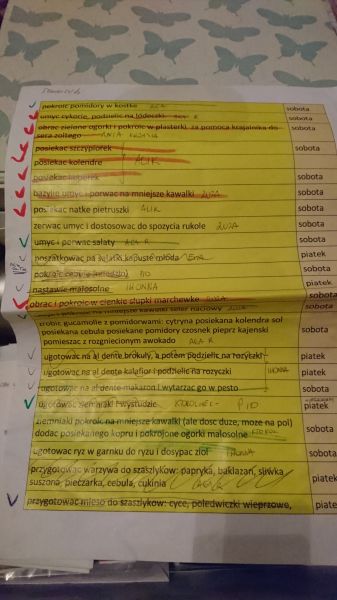 pokroic pomidory w kostke AGA sobota
umyc cykorie, podzielic na lodeczki AGA R sobota
obrac zielone ogorki i pokroic w plasterki za pomoca krajalnika do
sera zoltego sobota
posiekac szczypiorek sobota
posiekac kolendre ALIK sobota
posiekac koperek sobota
bazylie umyc i porwac na mniejsze kawalki ZUZA sobota
posiekac natke pietruszki ALIK sobota
zerwac umyc i dostosowac do spozycia rukole ZUZA sobota
umyc i porwac salaty AGA R sobota
poszatkowac na salatki kapuste mloda piatek
pokroic cebule piatek
nastawic malosolne IWONKA piatek
obrac i pokroic w cienkie slupki marchewke ZUZA sobota
i pokroic na mniejsze kawalki seler naciowy sobota
zrobic guacamolie z pomidorami: cytryna posiekana kolendra sol
posiekana cebula posiekane pomidory czosnek pieprz kajenski
pomieszac z rozgniecionym awokado AGA R sobota
ugotowac na al dente brokuly, a potem podzielic na rozyczki piatek
ugotowac na al dente kalafior i podzielic na rozyczki IWONA piatek
ugotowac na al dente makaron i wytarzac go w pesto sobota
ugotowac ziemniaki i wystudzic PIO piatek
ziemniaki pokroic na mniejsze kawalki (ale dosc duze, moze na pol)
dodac posiekanego kopru i pokrojone ogorki malosolne sobota
ugotowac ryz w garnku do ryzu i dosypac ziol IWONA sobota
przygotowac warzywa do szaszlykow: papryka, baklazan, sliwka
suszona, pieczarka, cebula, cukinia piatek
przygotowac mieso do szaszlykow: cyce, poledwiczki wieprzowe, piatek